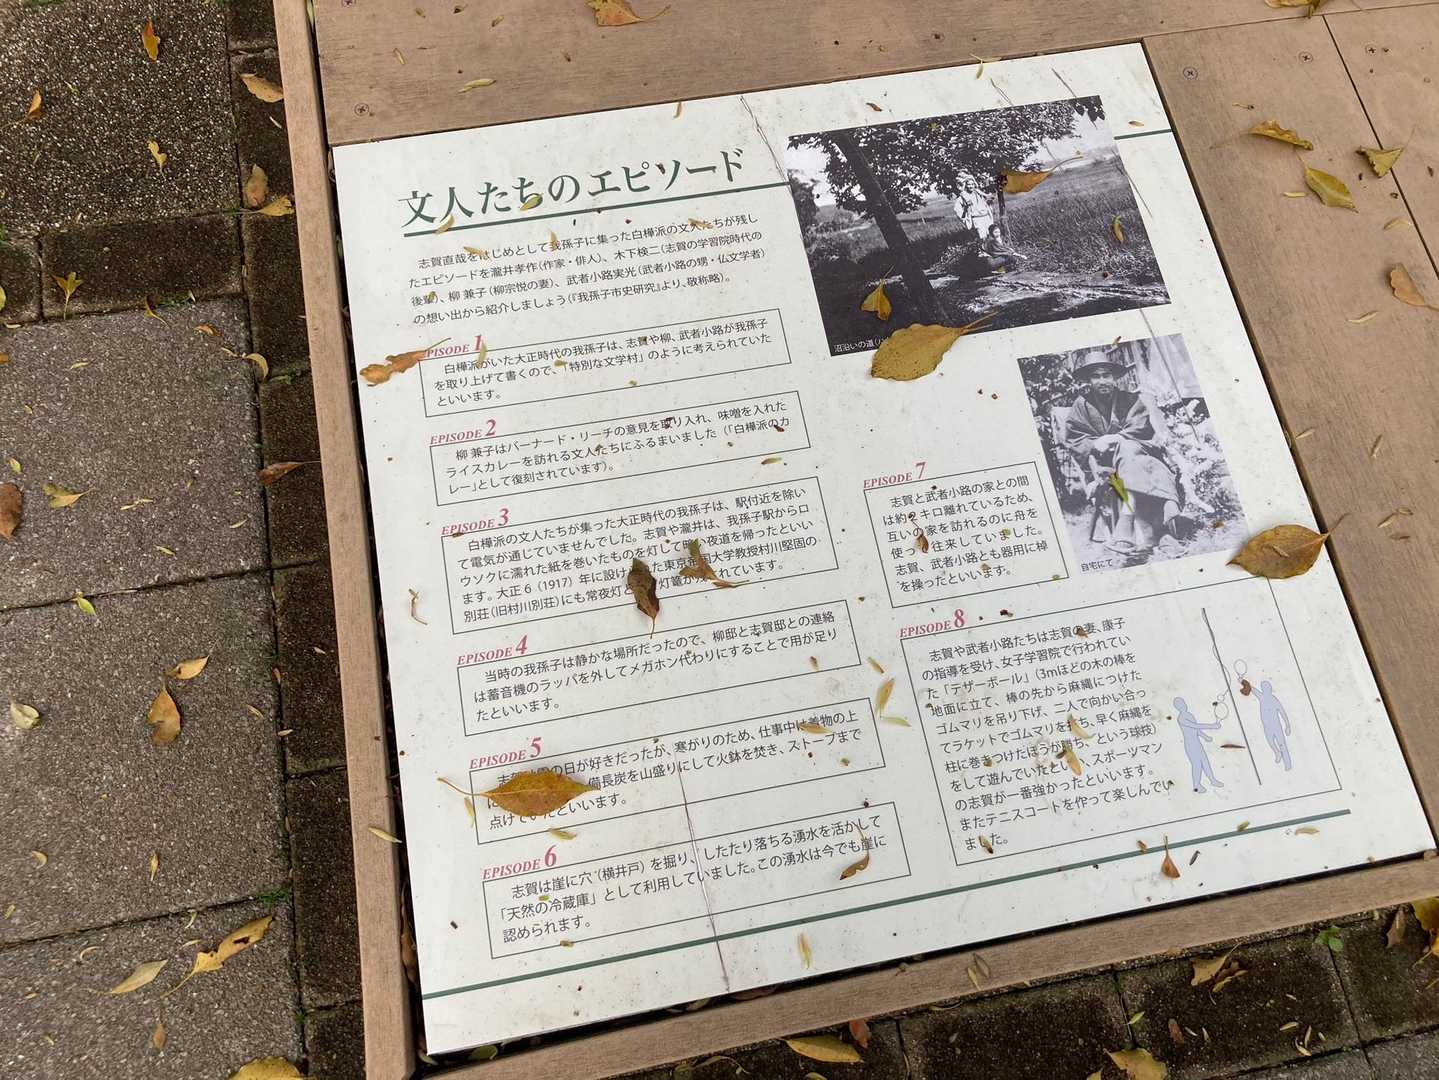 文人たちのエピソード
志賀直哉をはじめとして我孫子に集った白樺派の文人たちが残し
たエピソードを瀧井孝作(作家・俳人)、木下検二(志賀の学習院時代の
後輩)、柳 兼子(柳宗悦の妻)、武者小路実光(武者小路の甥・仏文学者)
の想い出から紹介しましょう(『我孫子市史研究』より、敬称略)。
EPISODE 1
白樺派がいた大正時代の我孫子は、志賀や柳、武者小路が我孫子
を取り上げて書くので、「特別な文学村」のように考えられていた
といいます。
EPISODE 2
柳 兼子はバーナード・リーチの意見を取り入れ、味噌を入れた
ライスカレーを訪れる文人たちにふるまいました（「白樺派のカ
レー」として復刻されています)。
EPISODE 3
白樺派の文人たちが集った大正時代の我孫子は、駅付近を除い
て電気が通じていませんでした。志賀や瀧井は、我孫子駅からロ
ウソクに濡れた紙を巻いたものを灯して暗い夜道を帰ったといい
ます。大正6（1917）年に設けられた東京帝国大学教授村川堅固の
別荘(旧村川別荘)にも常夜灯と 灯篭が されています。
EPISODE 4
当時の我孫子は静かな場所だったので、柳邸と志賀邸との連絡
は蓄音機のラッパを外してメガホン代わりにすることで用が足り
たといいます。
EPISODE 5
志賀は の日が好きだったが、寒がりのため、仕事中は着物の上
に 備長炭を山盛りにして火鉢を焚き、ストーブまで
点けていたといいます。
EPISODE 6
志賀は崖に穴（横井戸）を掘り、したたり落ちる湧水を活かして
「天然の冷蔵庫」として利用していました。この湧水は今でも崖に
認められます。
沼沿いの道
自宅にて
EPISODE 7
志賀と武者小路の家との間
は約2キロ離れているため、
互いの家を訪れるのに舟を
使って往来していました。
志賀、武者小路とも器用に棹
を操ったといいます。
EPISODE 8
志賀や武者小路たちは志賀の妻、康子
の指導を受け、女子学習院で行われてい
た「テザーボール」(3mほどの木の棒を
地面に立て、棒の先から麻縄につけた
ゴムマリを吊り下げ、二人で向かい合っ
てラケットでゴムマリを打ち、早く麻縄を
柱に巻きつけたほうが勝ち、という球技)
をして遊んでいたといい、スポーツマン
の志賀が一番強かったといいます。
またテニスコートを作って楽しんでい
ました。